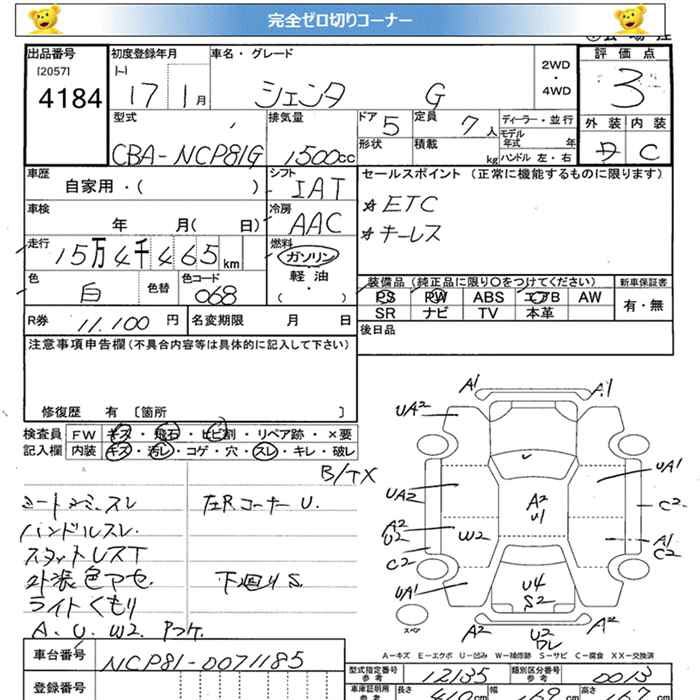 完全ゼロ切りコーナー
出品番号 初度登録年月 車名・グレード 2WD・4WD 評価点
[2057]
4184 17 1月 シエンタ G 3
型式 排気量 ドア 5 定員 7人 ディーラー・並行 外装 内装
CBA-NCP81G 1500cc 形状 積載 kg モデル年式 年 ハンドル 左・右 C
車歴 自家用・( ) シフト IAT セールスポイント (正常に機能するものに限ります)
車検 年 月( 日) 冷房 AAC ETC
走行 15万4千465km 燃料 ガソリン 軽油 ( ・ ) キーレス
色 白 色替 色コード 068 装備品 (純正品に限り○をつけてください) 新車保証書
PS PW ABS エアB AW 有・無
SR ナビ TV 本革
R券 11,100円 名変期限 月 日 後日品
注意事項申告欄(不具合内容等は具体的に記入して下さい)
修復歴 有 [箇所 ]
検査員 FW キズ・飛石・ヒビ割・リペア跡・×要
記入欄 内装 キズ・汚レ・コゲ・穴・スレ・キレ・破レ
B/TX
シートシミ、スレ 左Rコーナー U.
ハンドルスレ
外装色アセ 下回りS
ライトくもり
A、U、W2
A1 A1
UA2 A2
UA2 UA1
A2 A2 C2
U2 W2 U1 A1
C2 C2
UA1 U4
S2
スペア A2 U2 A2
ワレ
A-キズ E-エクボ U-凹み W-補修跡 S-サビ C-腐食 XX-交換済
車台番号 NCP81-0071185
登録番号 型式指定番号 参考 12135 類別区分番号 参考 0013
車庫証明用 参考 長さ 410cm 幅 169cm 高さ 167cm